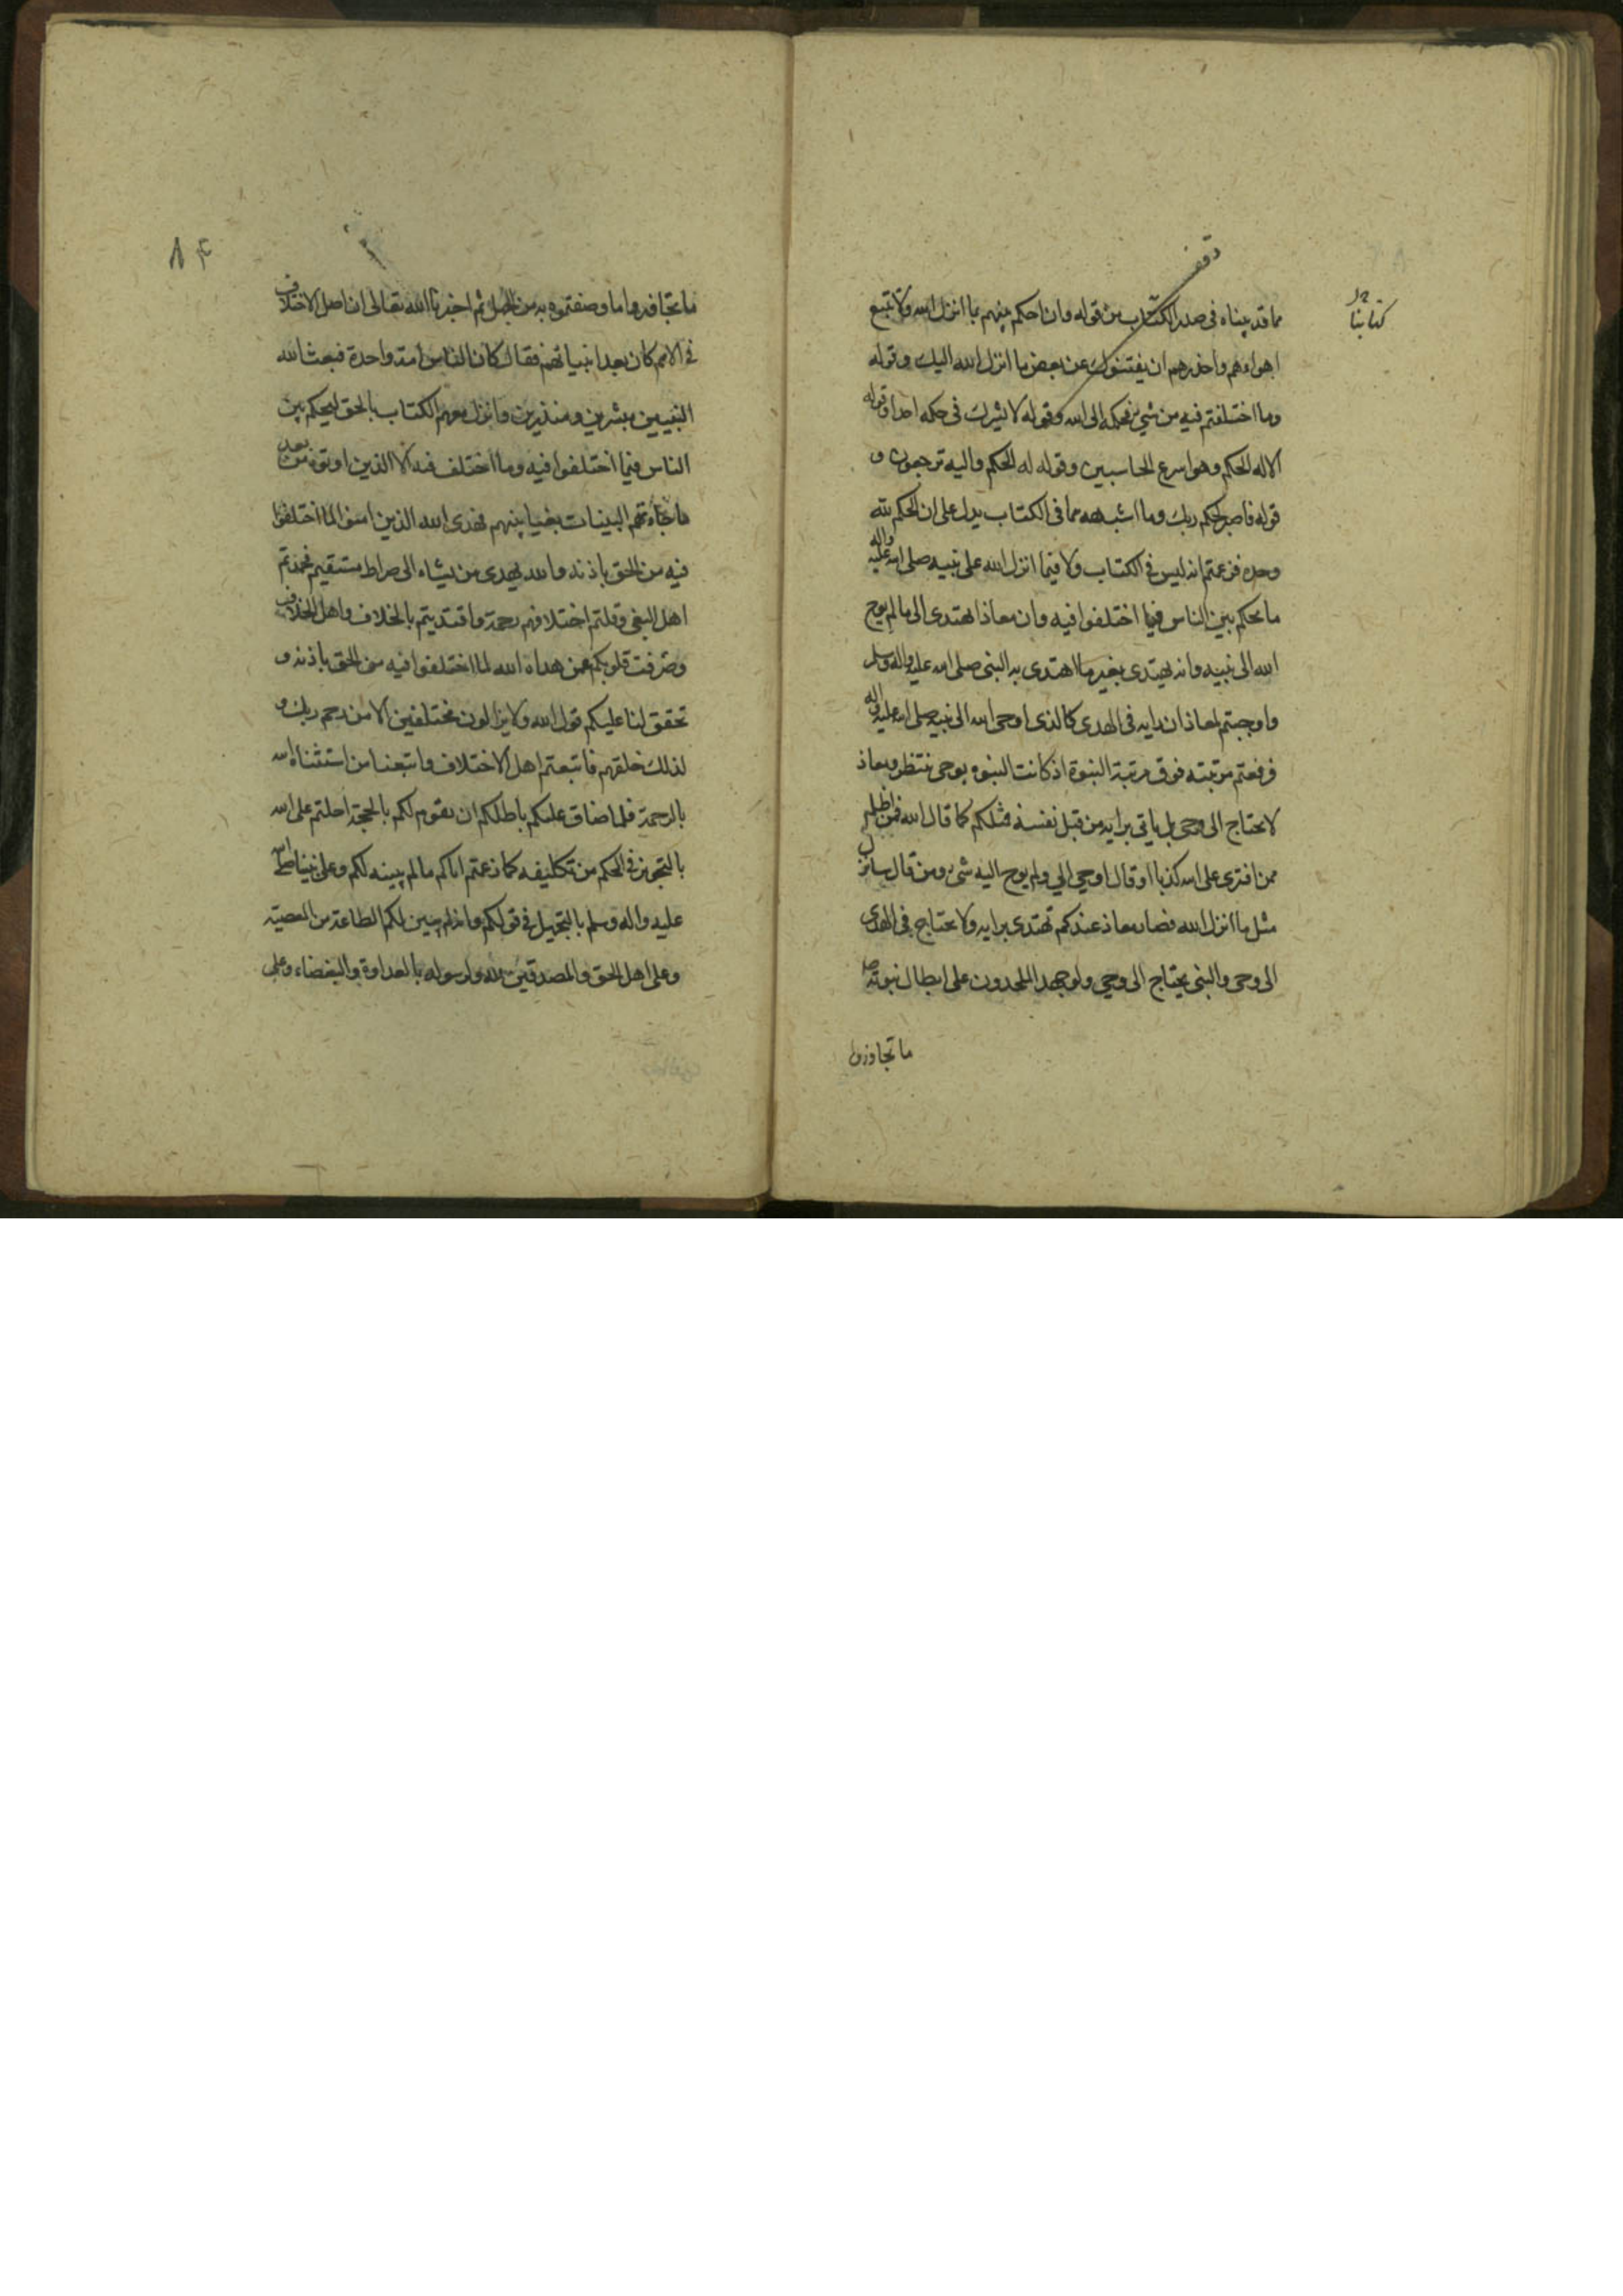 وقف
كتابنا
مما قد بيناه فى صدر الكتاب من قوله وان احكم بينهم بما انزل الله ولا تتبع
اهواءهم واحذرهم ان يفتنوك عن بعض ما انزل الله اليك وقوله
وما اختلفتم فيه من شيء فحكمه الى الله وقوله لا يشرك فى حكمه احدا وقوله
الا له الحكم وهو اسرع الحاسبين وقوله له الحكم واليه ترجعون و
قوله فاصبر لحكم ربك وما اشبهه مما فى الكتاب يدل على ان الحكم لله
وحده فزعمتم انه ليس فى الكتاب ولا فيما انزل الله على نبيه صلى الله عليه واله
ما يحكم بين الناس فيما اختلفوا فيه وان معاذا يهتدى الى ما لم يوح
الله الى نبيه وانه يهتدى بغير ما اهتدى به النبى صلى الله عليه واله وسلم
واوجبتم لمعاذ ان رايه فى الهدى كالذى اوحى الله الى نبيه صلى الله عليه واله
فرفعتم مرتبته فوق مرتبة النبوة اذ كانت النبوه بوحى ينتظر ومعاذ
لا يحتاج الى وحى بل ياتى برايه من قبل نفسه فمثلكم كما قال الله فمن اظلم
ممن افترى على الله كذبا او قال اوحي الي ولم يوح اليه شئ ومن قال سانزل
مثل ما انزل الله فصار معاذ عندكم يهتدى برايه ولا يحتاج فى الهدى
الى وحى والنبى يحتاج الى وحي ولو جهد الملحدون على ابطال نبوته
ما تجاوزوا
ما تجافدوا ما وصفتموه به من الجهل ثم اخبرنا الله تعالى ان اصل الاختلاف
فى الامم كان بعد انبيائهم فقال كان الناس امة واحدة فبعث الله
النبيين مبشرين ومنذرين وانزل معهم الكتاب بالحق ليحكم بين
الناس فيما اختلفوا فيه وما اختلف فيه الا الذين اوتوه من بعد
ما جاءتهم البينات بغيا بينهم فهدى الله الذين امنوا لما اختلفوا
فيه من الحق باذنه والله يهدى من يشاء الى صراط مستقيم فحمدتم
اهل البغى وقلتم اختلافهم رحمة واقتديتم بالخلاف واهل الخلاف
وصرفت قلوبكم عمن هداه الله لما اختلفوا فيه من الحق باذنه و
تحقق لنا عليكم قول الله ولا يزالون مختلفين الا من رحم ربك و
لذلك خلقهم فاتبعتم اهل الاختلاف واتبعنا من استثناه الله
بالرحمة فلما ضاق عليكم باطلكم ان يقوم لكم بالحجة احلتم على الله
بالتجويز فى الحكم من تكليفه كما زعمتم اياكم ما لم يبينه لكم وعلى نبينا صلى الله
عليه واله وسلم بالتجهيل فى قولكم وانه لم يبين لكم الطاعة من المعصية
وعلى اهل الحق والمصدقين لله ولرسوله بالعداوة والبغضاء وعلى